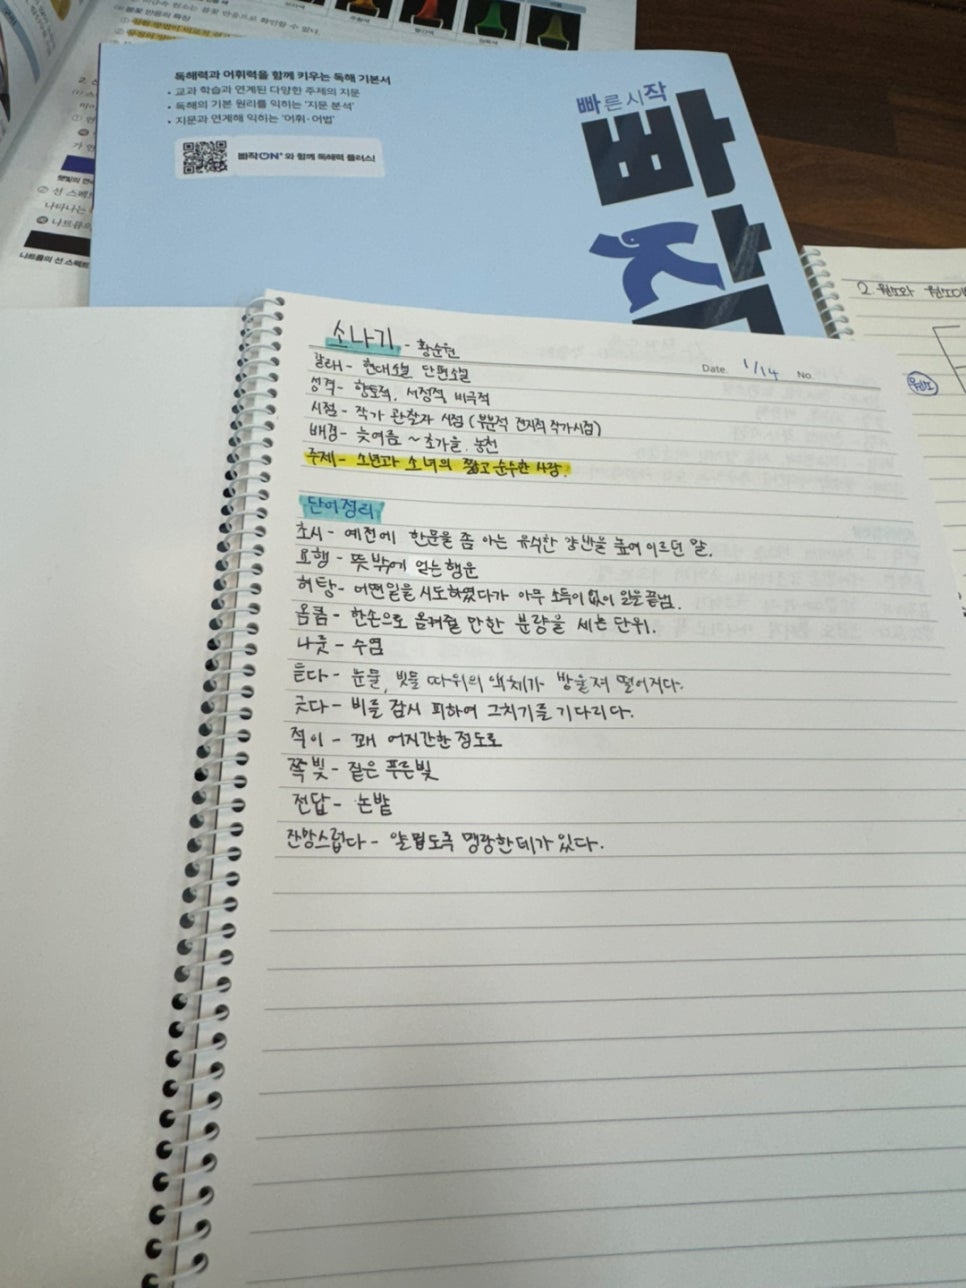 독해력과 어휘력을 함께 키우는 독해 기본서
• 교과 학습과 연계된 다양한 주제의 지문
• 독해의 기본 원리를 익히는 '지문 분석'
• 지문과 연계해 익히는 '어휘·어법'
빠작ON⁺와 함께 독해력 플러스!
빠른시작
빠작
소나기 - 황순원
Date. 1/14 No.
갈래 - 현대소설 단편소설
성격 - 향토적, 서정적, 비극적
시점 - 작가 관찰자 시점 (부분적 전지적 작가시점)
배경 - 늦여름 ~ 초가을, 농촌
주제 - 소년과 소녀의 짧고 순수한 사랑.
단어정리
초시 - 예전에 한문을 좀 아는 유식한 양반을 높여 이르던 말.
요행 - 뜻밖에 얻는 행운
허탕 - 어떤일을 시도하였다가 아무 소득이 없이 일을 끝냄.
옴큼 - 한손으로 옴켜쥘 만한 분량을 세는 단위.
나룻 - 수염
듣다 - 눈물, 빗물 따위의 액체가 방울져 떨어지다.
긋다 - 비를 잠시 피하여 그치기를 기다리다.
적이 - 꽤 어지간한 정도로
쪽빛 - 짙은 푸른빛
전답 - 논밭
잔망스럽다 - 얄밉도록 맹랑한데가 있다.
2. 원소와
원소
나트륨의 선 스펙트